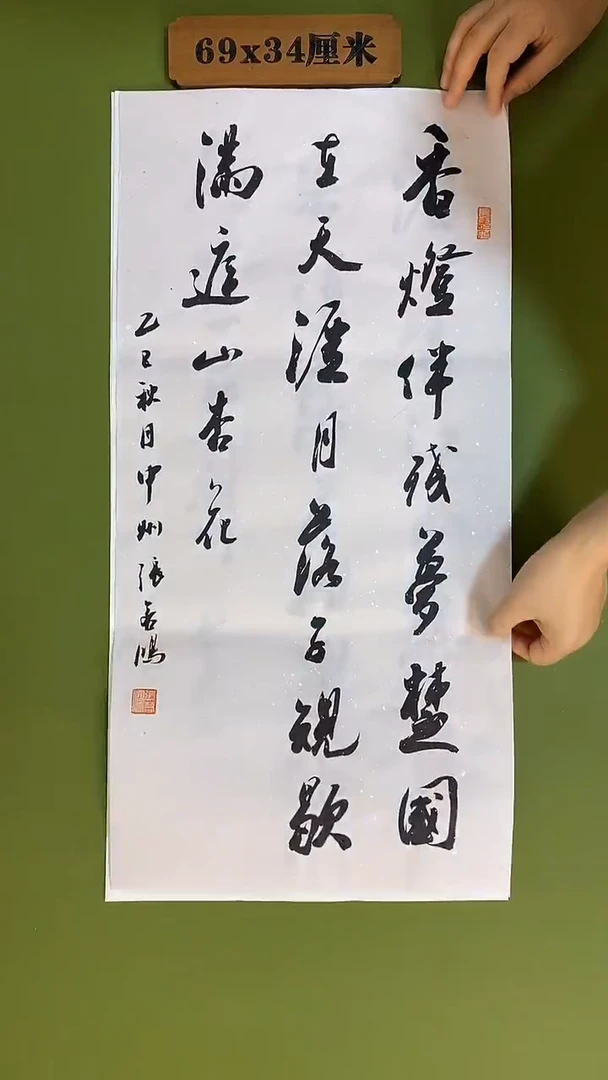 69x34厘米
香燈伴残夢楚國
在天涯月落子規歇
滿庭山杏花
乙巳秋日中州張鴻